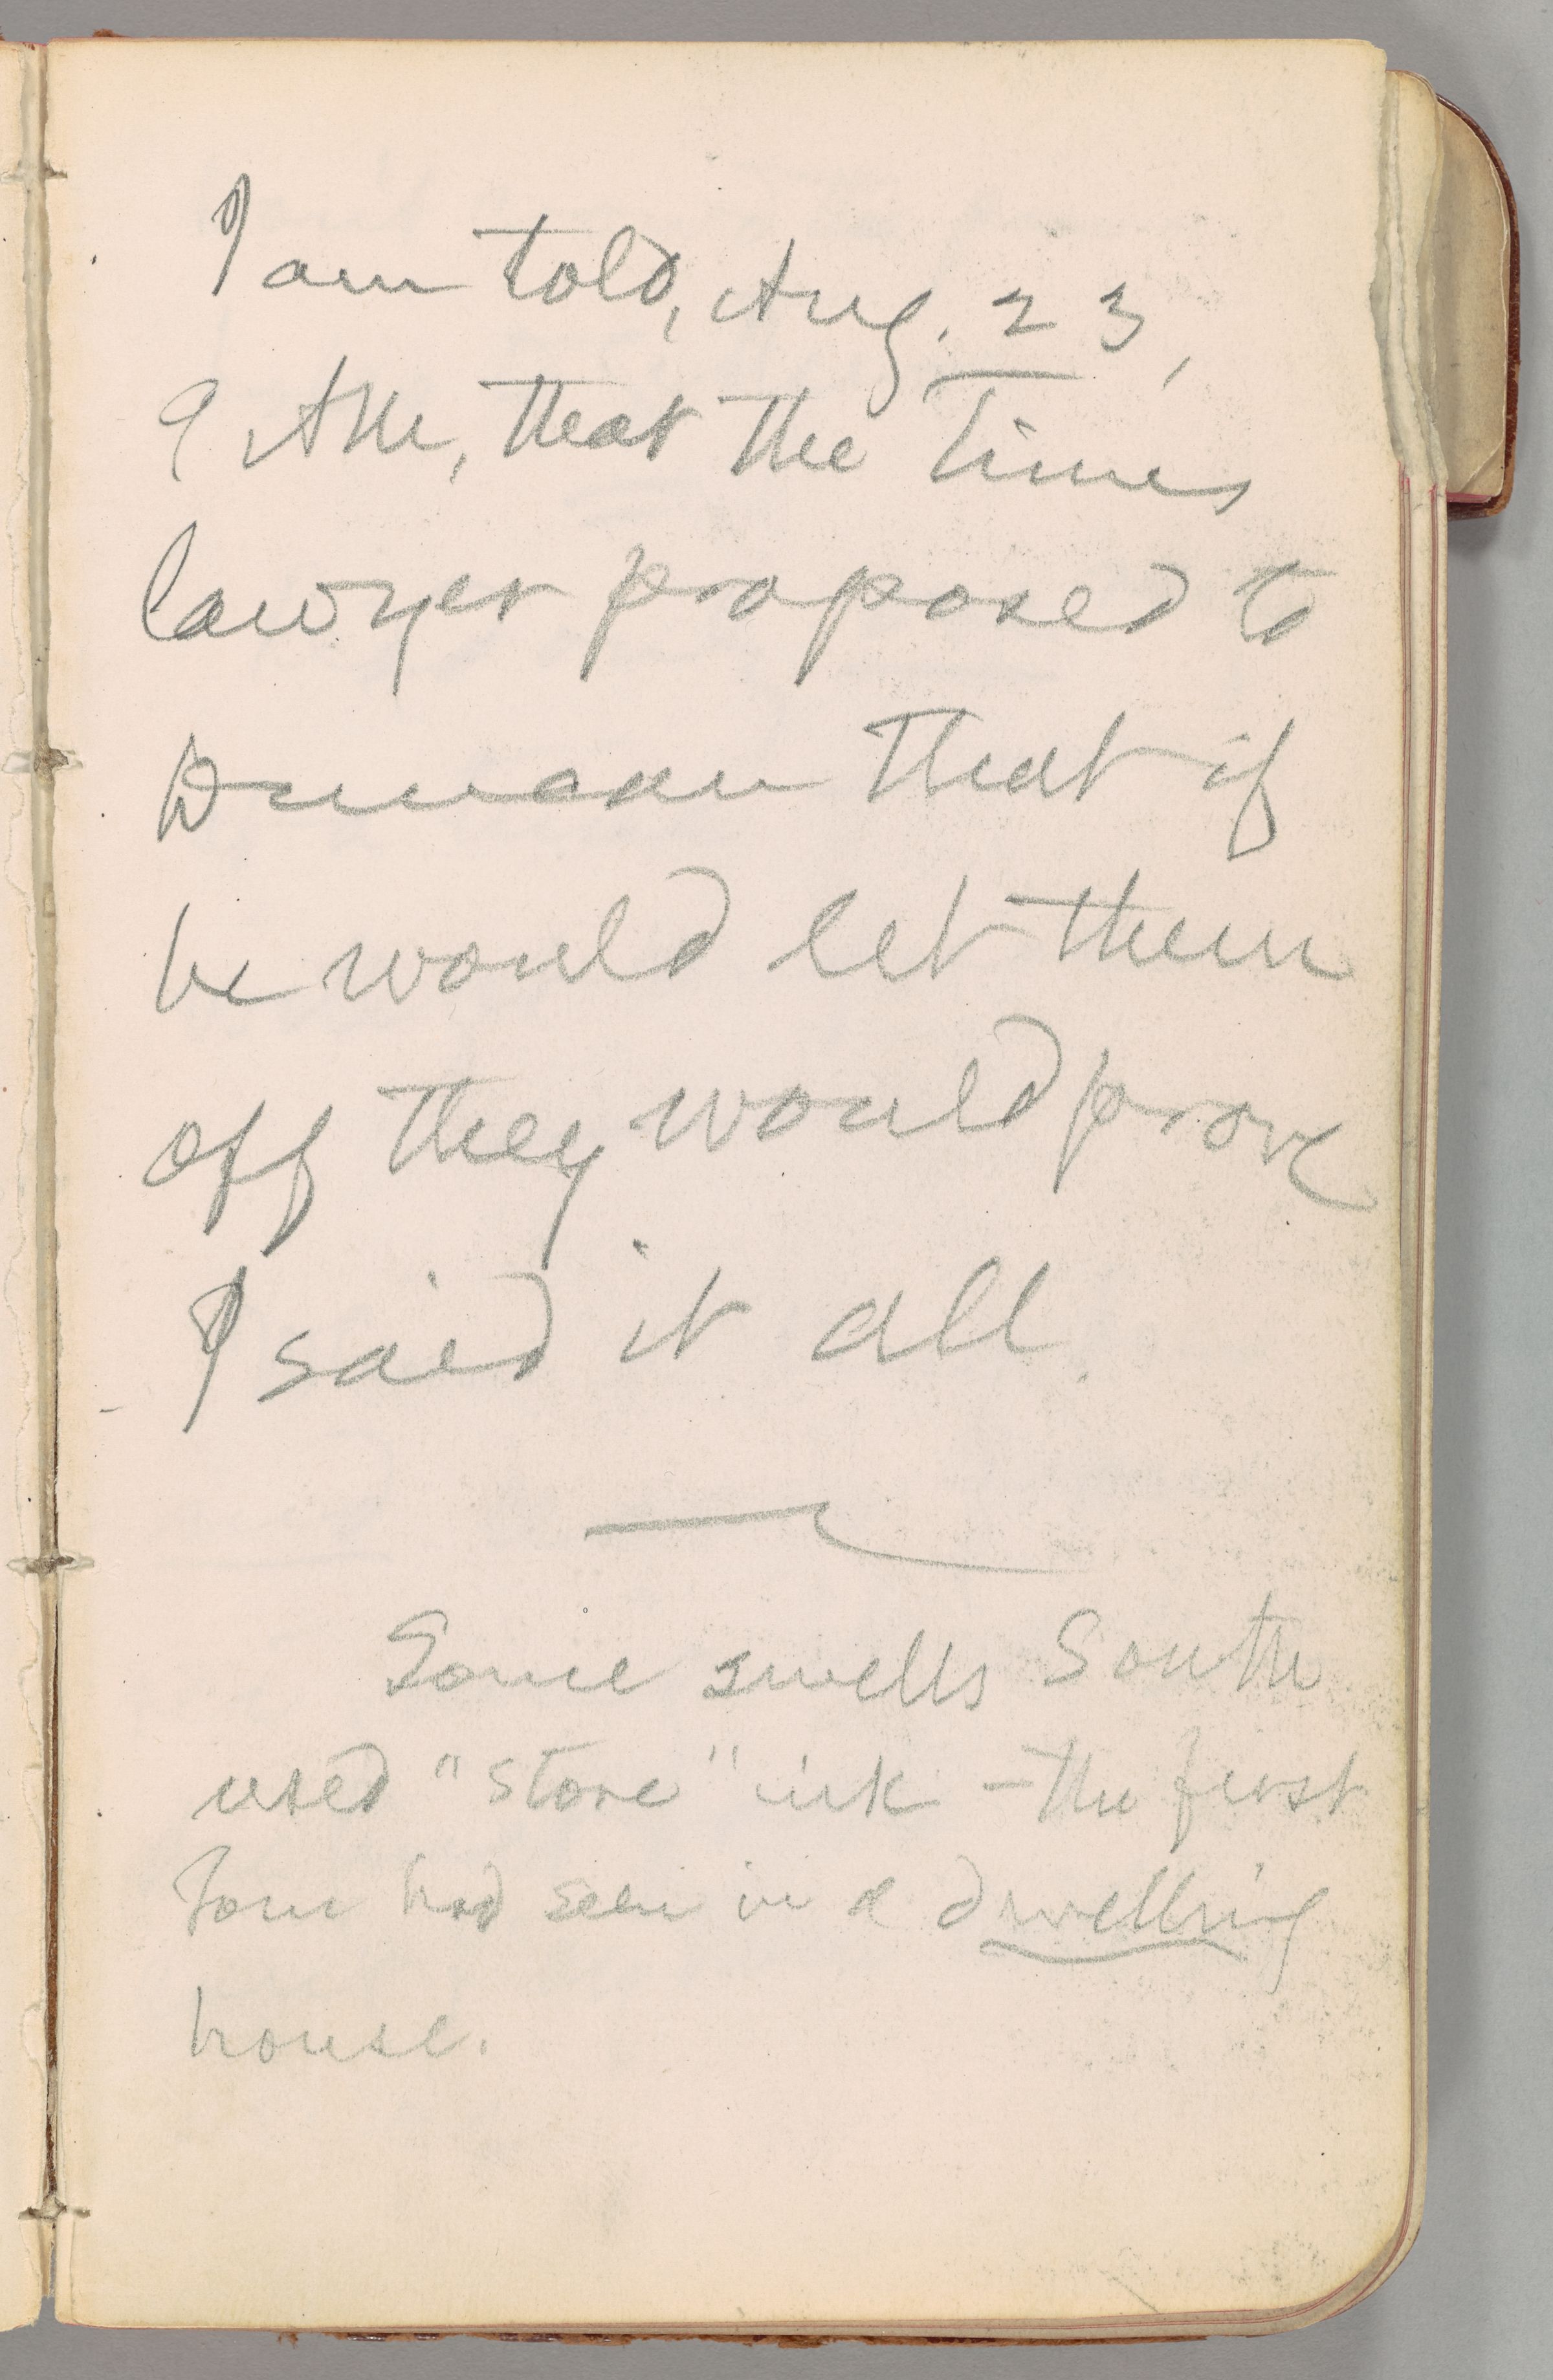 I am told, Aug. 23,
9 AM, that the Times
lawyer proposed to
Duncan that if
he would let them
off they would prove
I said it all.
Some swells South
used "store" ink — the first
Tom had seen in a dwelling
house.